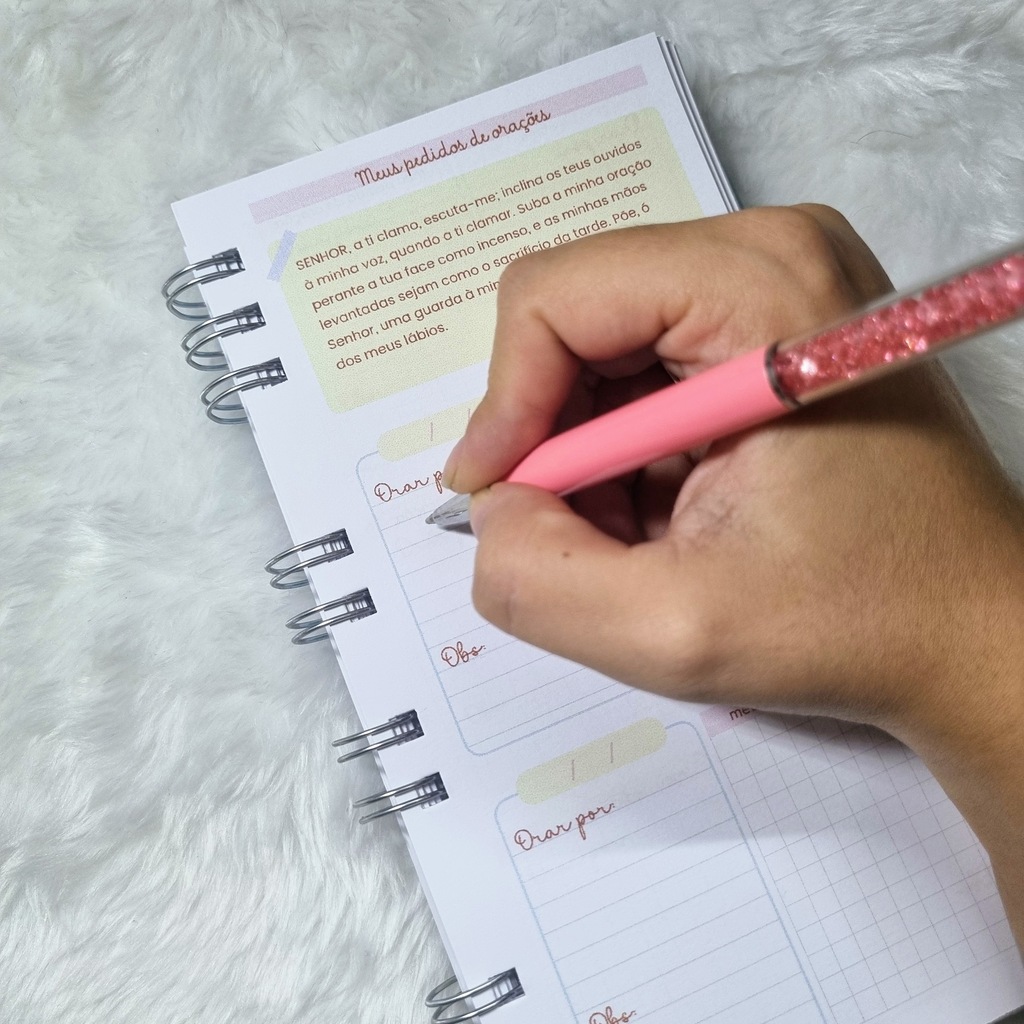 Meus pedidos de orações
SENHOR, a ti clamo, escuta-me; inclina os teus ouvidos
à minha voz, quando a ti clamar. Suba a minha oração
perante a tua face como incenso, e as minhas mãos
levantadas sejam como o sacrifício da tarde. Põe, ó
Senhor, uma guarda à
dos meus lábios.
/
Orar
Obs:
/ /
Orar por:
Obs: